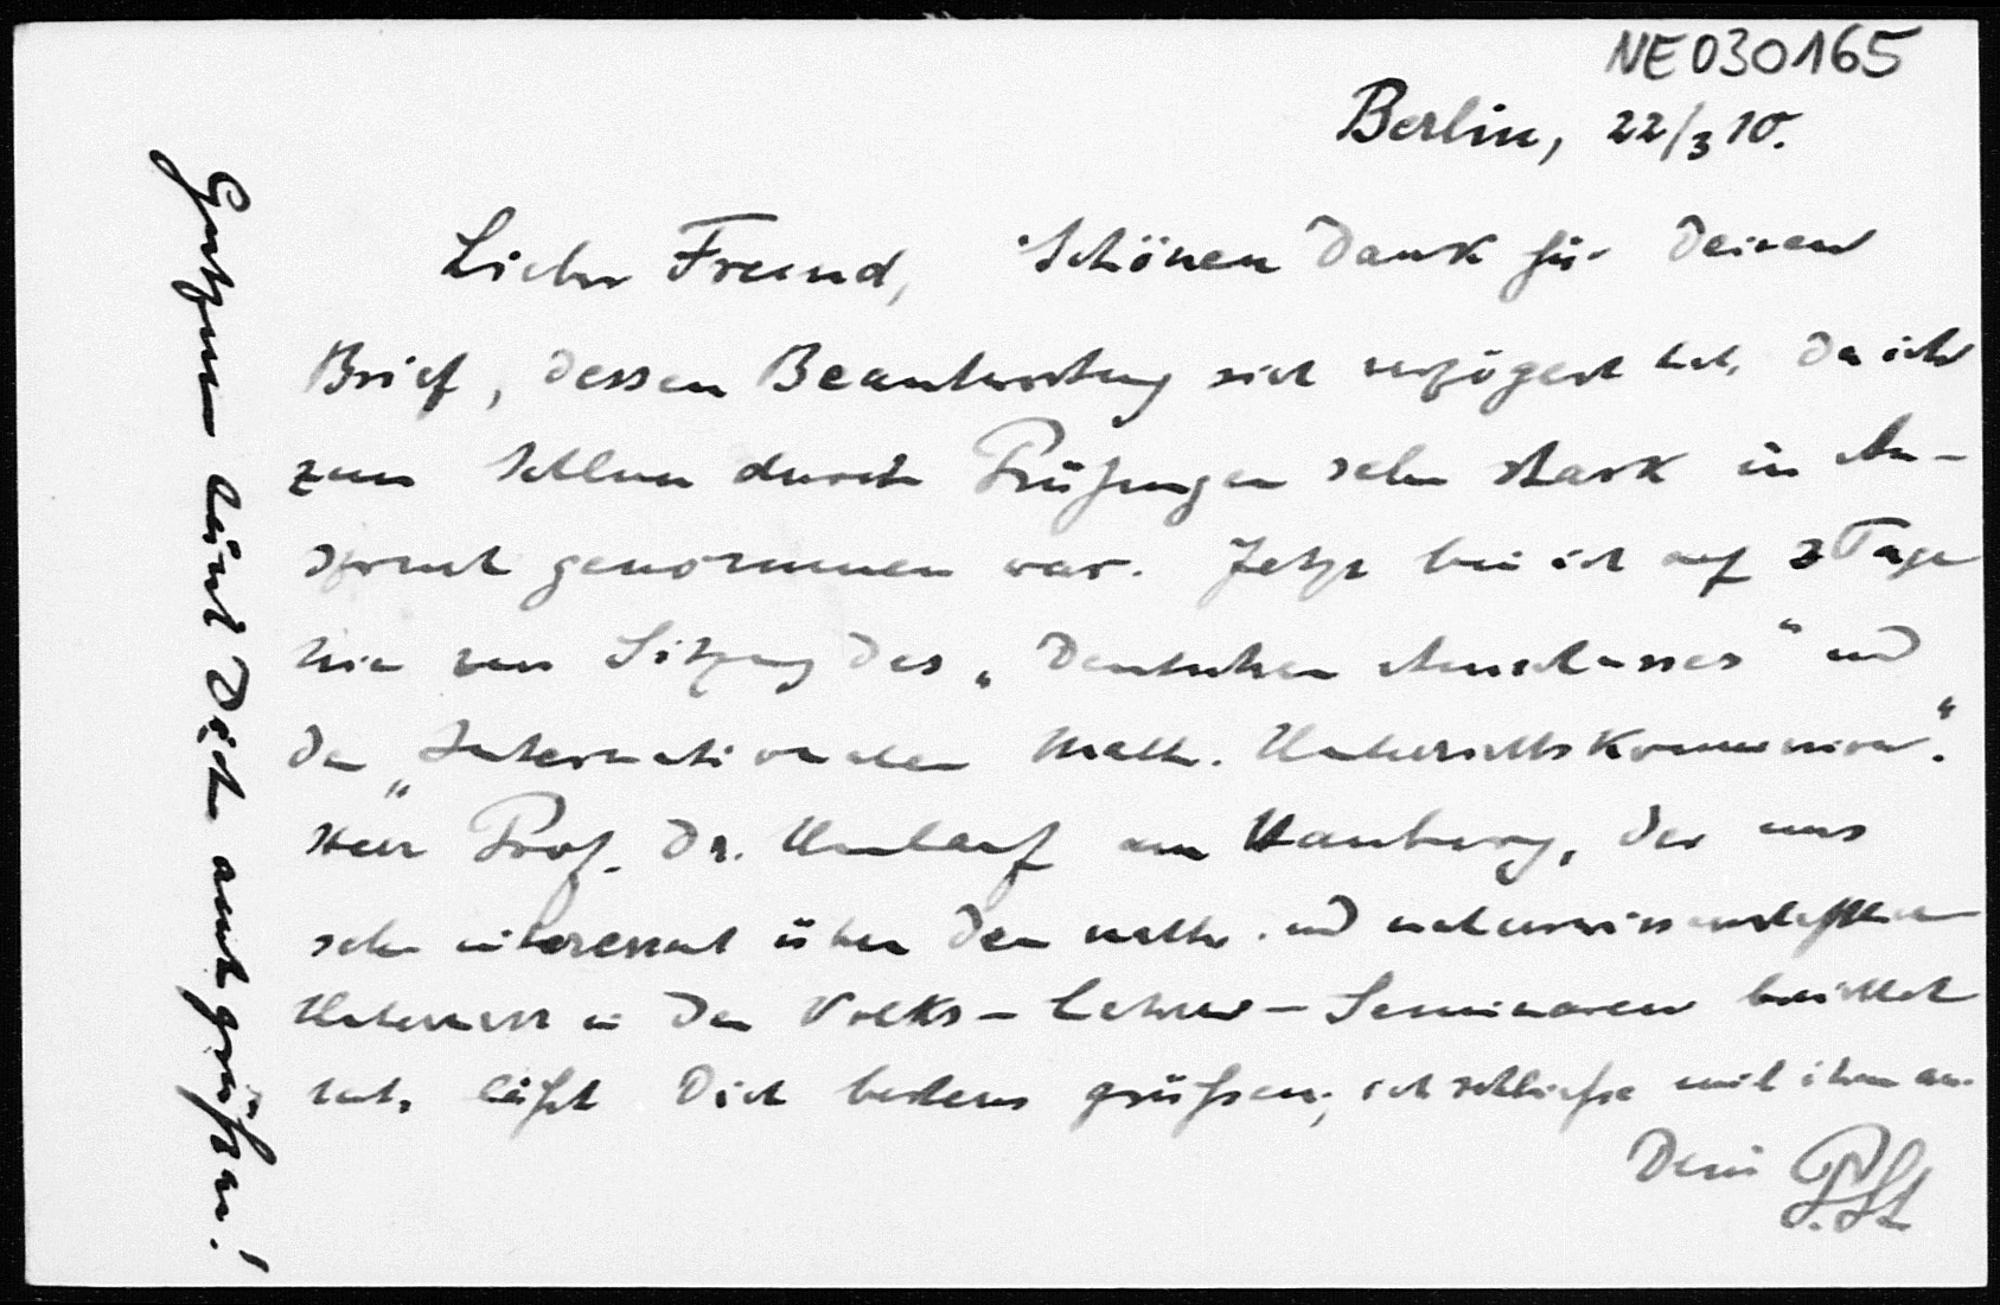 NE030165
Berlin, 22/3 10.
Lieber Freund, Schönen Dank für Deinen
Brief, dessen Beantwortung sich verzögert hat, da ich
zum durch Prüfungen sehr stark in An-
spruch genommen war. Jetzt bin ich auf 3 Tage
hier zur Sitzung des „Deutschen Ausschusses" und
der „Internationalen Math. Unterrichtskommission".
Herr Prof. Dr. Umlauf aus Hamburg, der uns
sehr interessant über den math. und naturwissenschaftlichen
Unterricht in den Volks-Lehrer-Seminaren berichtet
hat, läßt Dich bestens grüßen; ich schließe mich ihm an.
Dein P. St
Gutzmer läßt Dich auch grüßen!